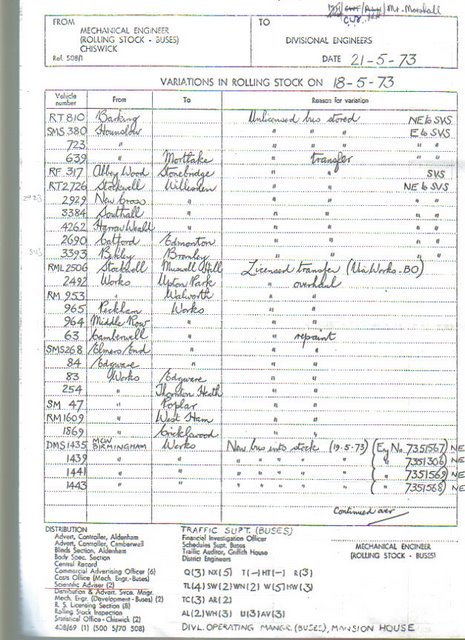 Mr. Marshall
FROM
TO
MECHANICAL ENGINEER
(ROLLING STOCK - BUSES)
CHISWICK
Ref. 508/1
DIVISIONAL ENGINEERS
DATE 21-5-73
VARIATIONS IN ROLLING STOCK ON 18-5-73
Vehicle number From To Reason for variation
RT 810 Barking Unlicensed bus stored NE to SVS
SMS 380 Hounslow " " " " E to SVS
723 " " " " " "
639 " Mortlake " " transfer " "
RF 317 Abbey Wood Stonebridge " " " SVS
RT 2726 Stockwell Willesden " " " NE to SVS
2929 New Cross " " " " " "
3384 Southall " " " " " "
4262 Harrow Weald " " " " " "
2690 Catford Edmonton " " " " "
3393 Bexley Bromley " " " " "
RML 2506 Stockwell Muswell Hill Licensed transfer (Via Works. BO)
2492 Works Upton Park " overhaul
RM 953 " Walworth " "
965 Peckham Works " "
964 Middle Row " " "
63 Camberwell " " repaint
SMS 268 Elmers End " " "
84 Edgware " " "
83 Works Edgware " "
254 " Thornton Heath " "
SM 47 " Poplar " "
RM 1609 " West Ham " "
1869 " Cricklewood " "
DMS 1435 MCW BIRMINGHAM Works New bus into stock (19-5-73) (Eng No. 7351567) NE
1439 " " " " " " " ( " 7351306) NE
1441 " " " " " " " ( " 7351569) NE
1443 " " " " " " " ( " 7351568) NE
Continued over
DISTRIBUTION
Advert. Controller, Aldenham
Advert. Controller, Camberwell
Blinds Section, Aldenham
Body Spec. Section
Central Record
Commercial Advertising Officer (6)
Costs Office (Mech. Engr.-Buses)
Scientific Adviser (2)
Distribution & Advert. Svce. Mngr.
Mech. Engr. (Development-Buses) (2)
R. S. Licensing Section (8)
Rolling Stock Inspection
Statistical Office - Chiswick (2)
408/69 (1) (500 5/70 508)
TRAFFIC SUPT. (BUSES)
Financial Investigation Officer
Schedules Supt. Buses
Traffic Auditor, Griffith House
District Engineers
Q(3) NX(5) T(-) HT(-) R(3)
TL(4) SW(2) WN(2) W(5) HW(3)
TC(3) AR(2)
AL(2) WH(3) U(3) AV(3)
DIVL. OPERATING MANGR. (BUSES), MANSION HOUSE
MECHANICAL ENGINEER
(ROLLING STOCK - BUSES)